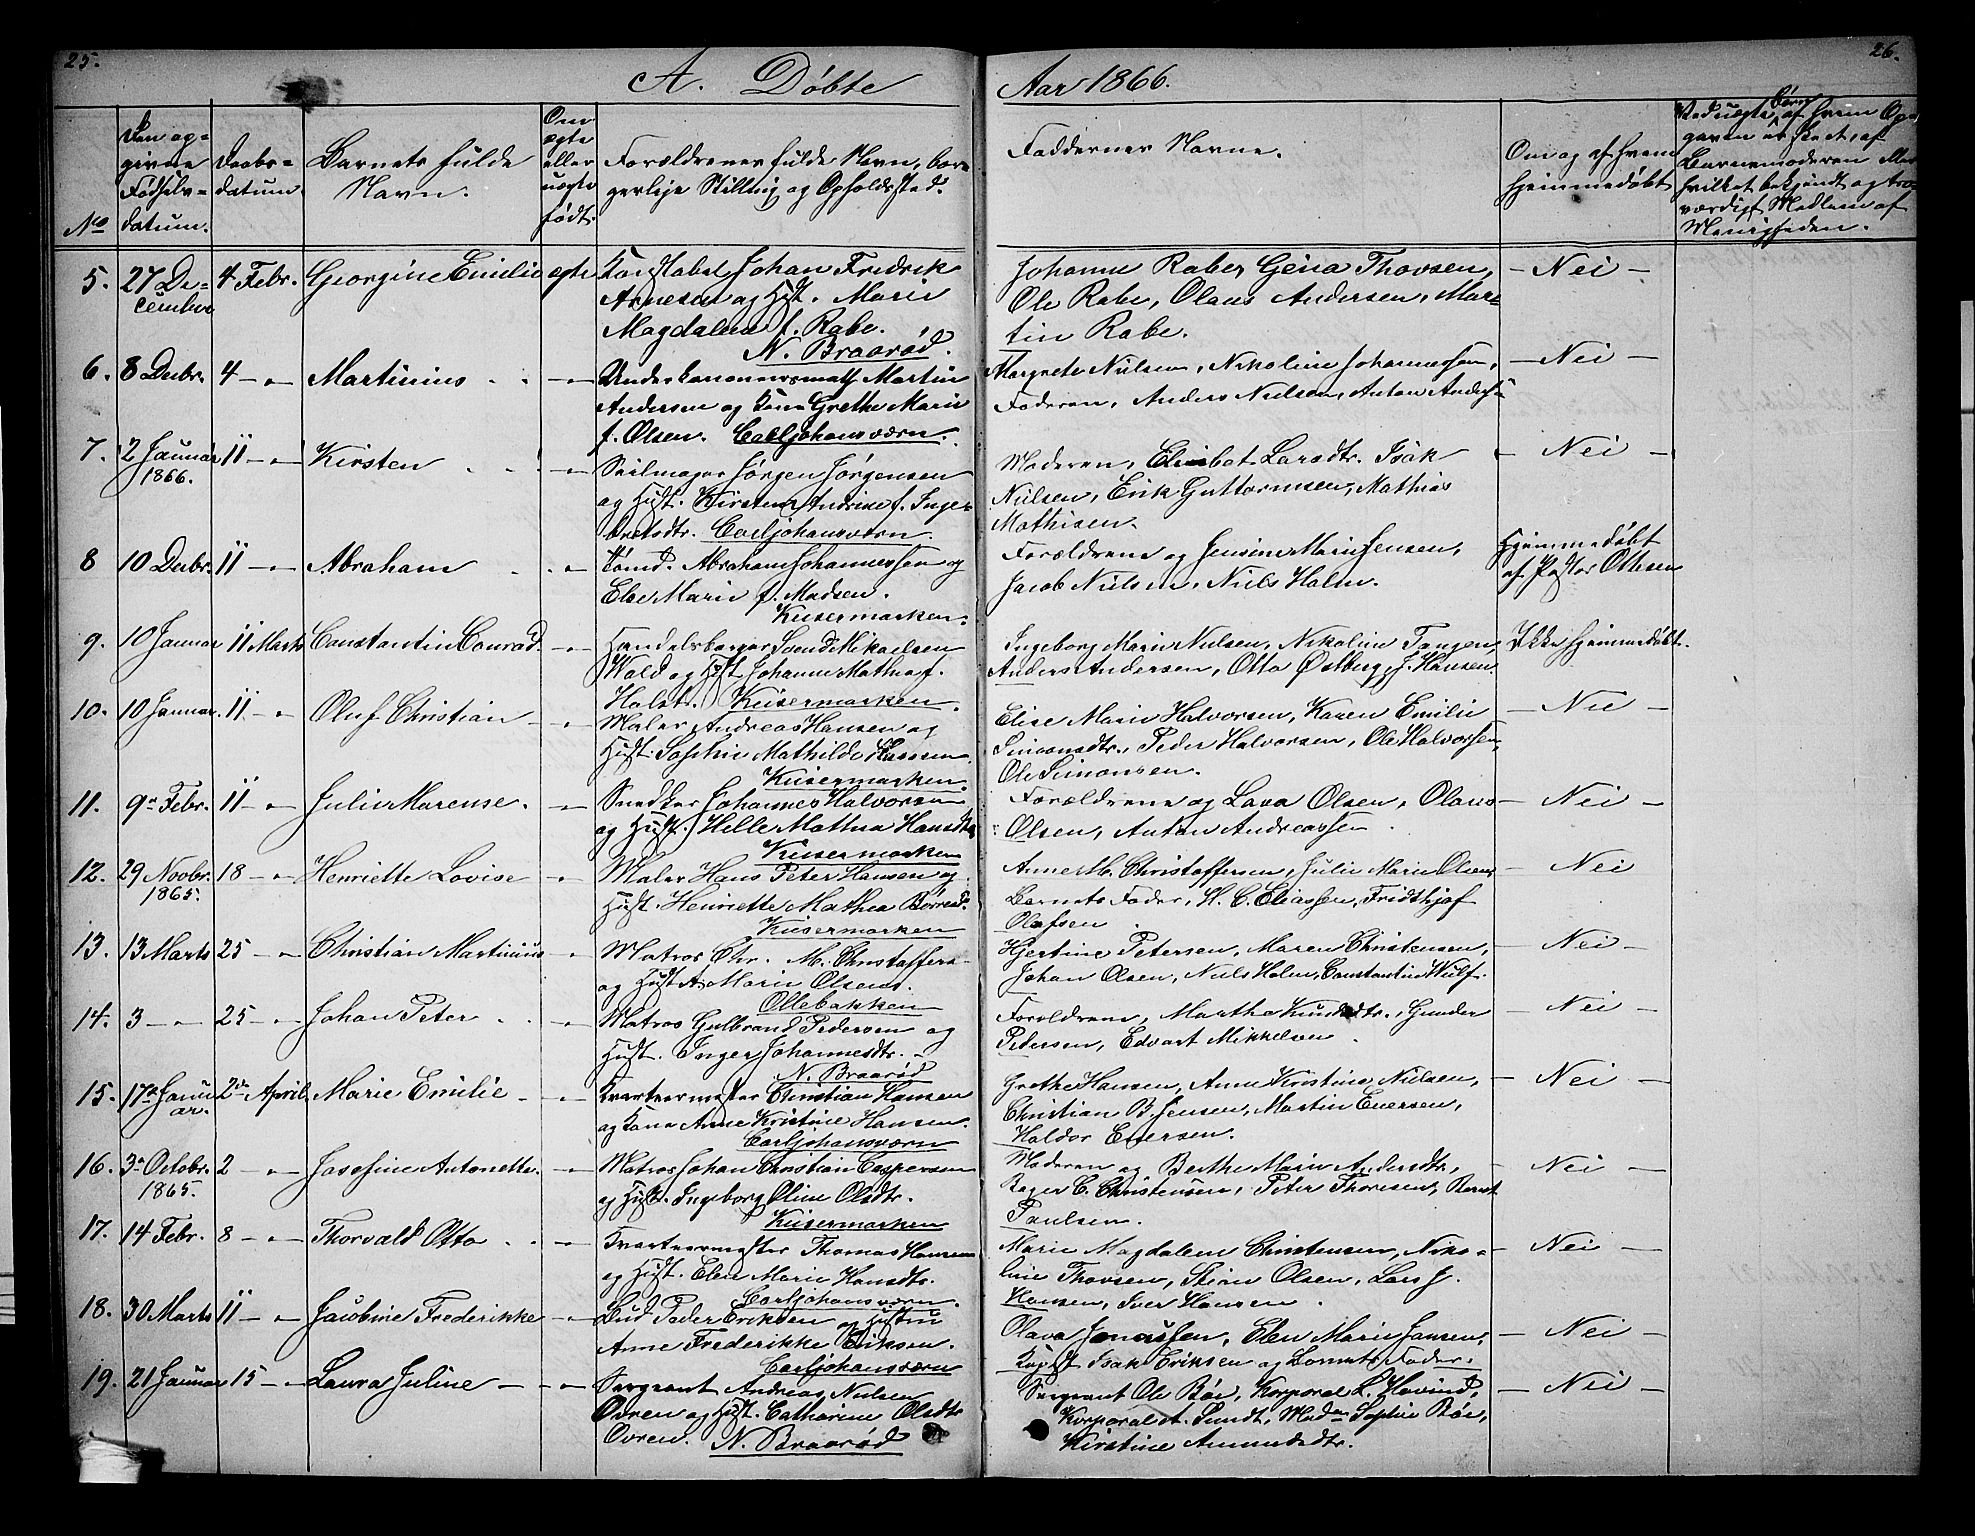 25.
A. Døbte
Aar 1866.
26.
No
Den op-
givne
Fødsels-
datum.
Daabs-
datum.
Barnets fulde
Navn.
Om
ægte
eller
uægte
født.
Forældrenes fulde Navn, bor-
gerlige Stilling og Opholdssted.
Faddernes Navne.
Om og af hvem
hjemmedøbt
Ved uægte Børn, af hvem Op-
gaven er skeet, af
Barnemoderen eller
hvilket bekjendt og tro-
værdigt Medlem af
Menigheden.
5. 27 De-
cember
4 Febr. Georgine Emilie ægte
Konstabel Johan Fredrik
Arnesen og Hust. Marie
Magdalene f. Rabe.
N. Braarød.
Johanne Rabe, Gena Thovsen,
Ole Rabe, Olaus Andersen, Mar-
tin Rabe.
– Nei –
6. 8 Decbr. 4 – „ – Martinius – „ –
Underkanonnersmath Martin
Andersen og Kone Grethe Marie
f. Olsen. Carljohansværn.
Margrete Nielsen, Nikoline Johannessen,
Faderen, Anders Nielsen, Anton Anders
– Nei –
7. 2 Januar
1866.
11 – „ – Kirsten – „ –
Seilmager Jørgen Jørgensen
og Hust. Kirstene Andrine f. Inge-
bretsdtr. Carljohansværn.
Moderen, Elisbet Larsdtr. Isak
Nielsen, Erik Guttormsen, Mathias
Mathisen.
– Nei –
8 10 Decbr. 11 – „ – Abraham – „ –
Tømd. Abraham Johannessen og
Else Marie f. Madsen.
Kusermarken.
Forældrene og Jensine Marie Jensen,
Jacob Nielsen, Niels Holm.
Hjemmedøbt
af Pastor Ottesen
9. 10 Januar 11 Marts Constantin Conrad. – „ –
Handelsborger Svend Mikaelsen
Wold og Hust. Johanne Mathea f.
Holst. Kusermarken.
Ingeborg Marie Nielsen, Nikoline Tangen,
Anders Andersen, Otto Østberg, J. Hansen.
Ikke hjemmedøbt.
10. 10 Januar. 11 – „ Oluf Christian – „ –
Maler Andreas Hansen og
Hust. Sophie Mathilde Hansen
Kusermarken.
Elise Marie Halvorsen, Karen Emilie
Simonsdtr., Peder Halvorsen, Ole Halvorsen,
Ole Simonsen.
– Nei –
11. 9de Febr. 11 – „ – Julie Marense. – „ –
Snedker Johannes Halvorsen
og Hust. Helle Mathea Hansdtr.
Kusermarken
Forældrene og Lava Olsen, Olaus
Olsen, Anton Andreassen.
– Nei –
12. 29 Novbr.
1865.
18 – „ – Henriette Lovise – „
Maler Hans Peter Hansen og
Hust. Henriette Mathea Børresd.
Kusermarken
Anne M. Christoffersen, Julie Marie Olsen,
Barnets Fader, H. C. Eliassen, Fridthjof
Olafsen
– Nei
13. 13 Marts 25 – „ – Christian Martinius – „
Matros Chr. M. Christoffers-
og Hust A. Marie Olsens.
Ollebakken
Hjertine Petersen, Maren Christensen,
Johan Olsen, Niels Holm, Constantin Wulf.
– Nei –
14. 3 – „ – 25 – „ – Johan Peter – „ –
Matros Gulbrand Pedersen og
Hust. Inger Johannesdtr. –
N. Braarød
Forældrene, Martha Knudsdtr., Gunder
Pedersen, Edvart Mikkelsen.
– Nei –
15. 17de Janu
ar.
2den April. Marie Emilie – „ –
Kvartermester Christian Hansen
og Kone Anne Kirstine Hansen.
Carljohansværn
Grethe Hansen, Anne Kirstine Nielsen,
Christian B. Jensen, Martin Eversen,
Haldor Eversen.
– Nei –
16. 3de Octobr.
1865.
2 – „ – Josefine Antonette. – „ –
Matros Johan Christian Caspersen
og Hust. Ingeborg Oline Olsdtr.
Kusermarken
Moderen og Berthe Marie Andersdtr.,
Roger C. Christensen, Peter Thoresen, Bernt
Paulsen.
– Nei –
17. 14 Febr. 8 – „ – Thorvald Otto – „ –
Kvartermester Thomas Hansen
og Hust. Elen Marie Hansdtr.
Carljohansværn.
Marie Magdalene Christensen, Niko-
line Thovsen, Stine Olsen, Lars J.
Hansen, Iver Hansen.
– Nei –
18. 30 Marts 11 – „ – Jacobine Frederikke – „ –
Bud Peder Eriksen og Hustru
Anne Frederikke Eriksen.
Carljohansværn
Olava Jonassen, Elen Marie Jansen,
Kapt. Isak Eriksen og Barnets Fader.
– Nei –
19. 21 Januar 15 – „ – Laura Juline – „ –
Sergeant Andreas Nielsen
Ovren og Hust. Cathrine Olsdtr
Ovren. N. Braarød
Sergeant Ole Bøe, Korporal L. Hovind,
Korporal A. Pundt, Madm Sophie Bøe,
Kirstine Ammundsdtr.
– Nei –